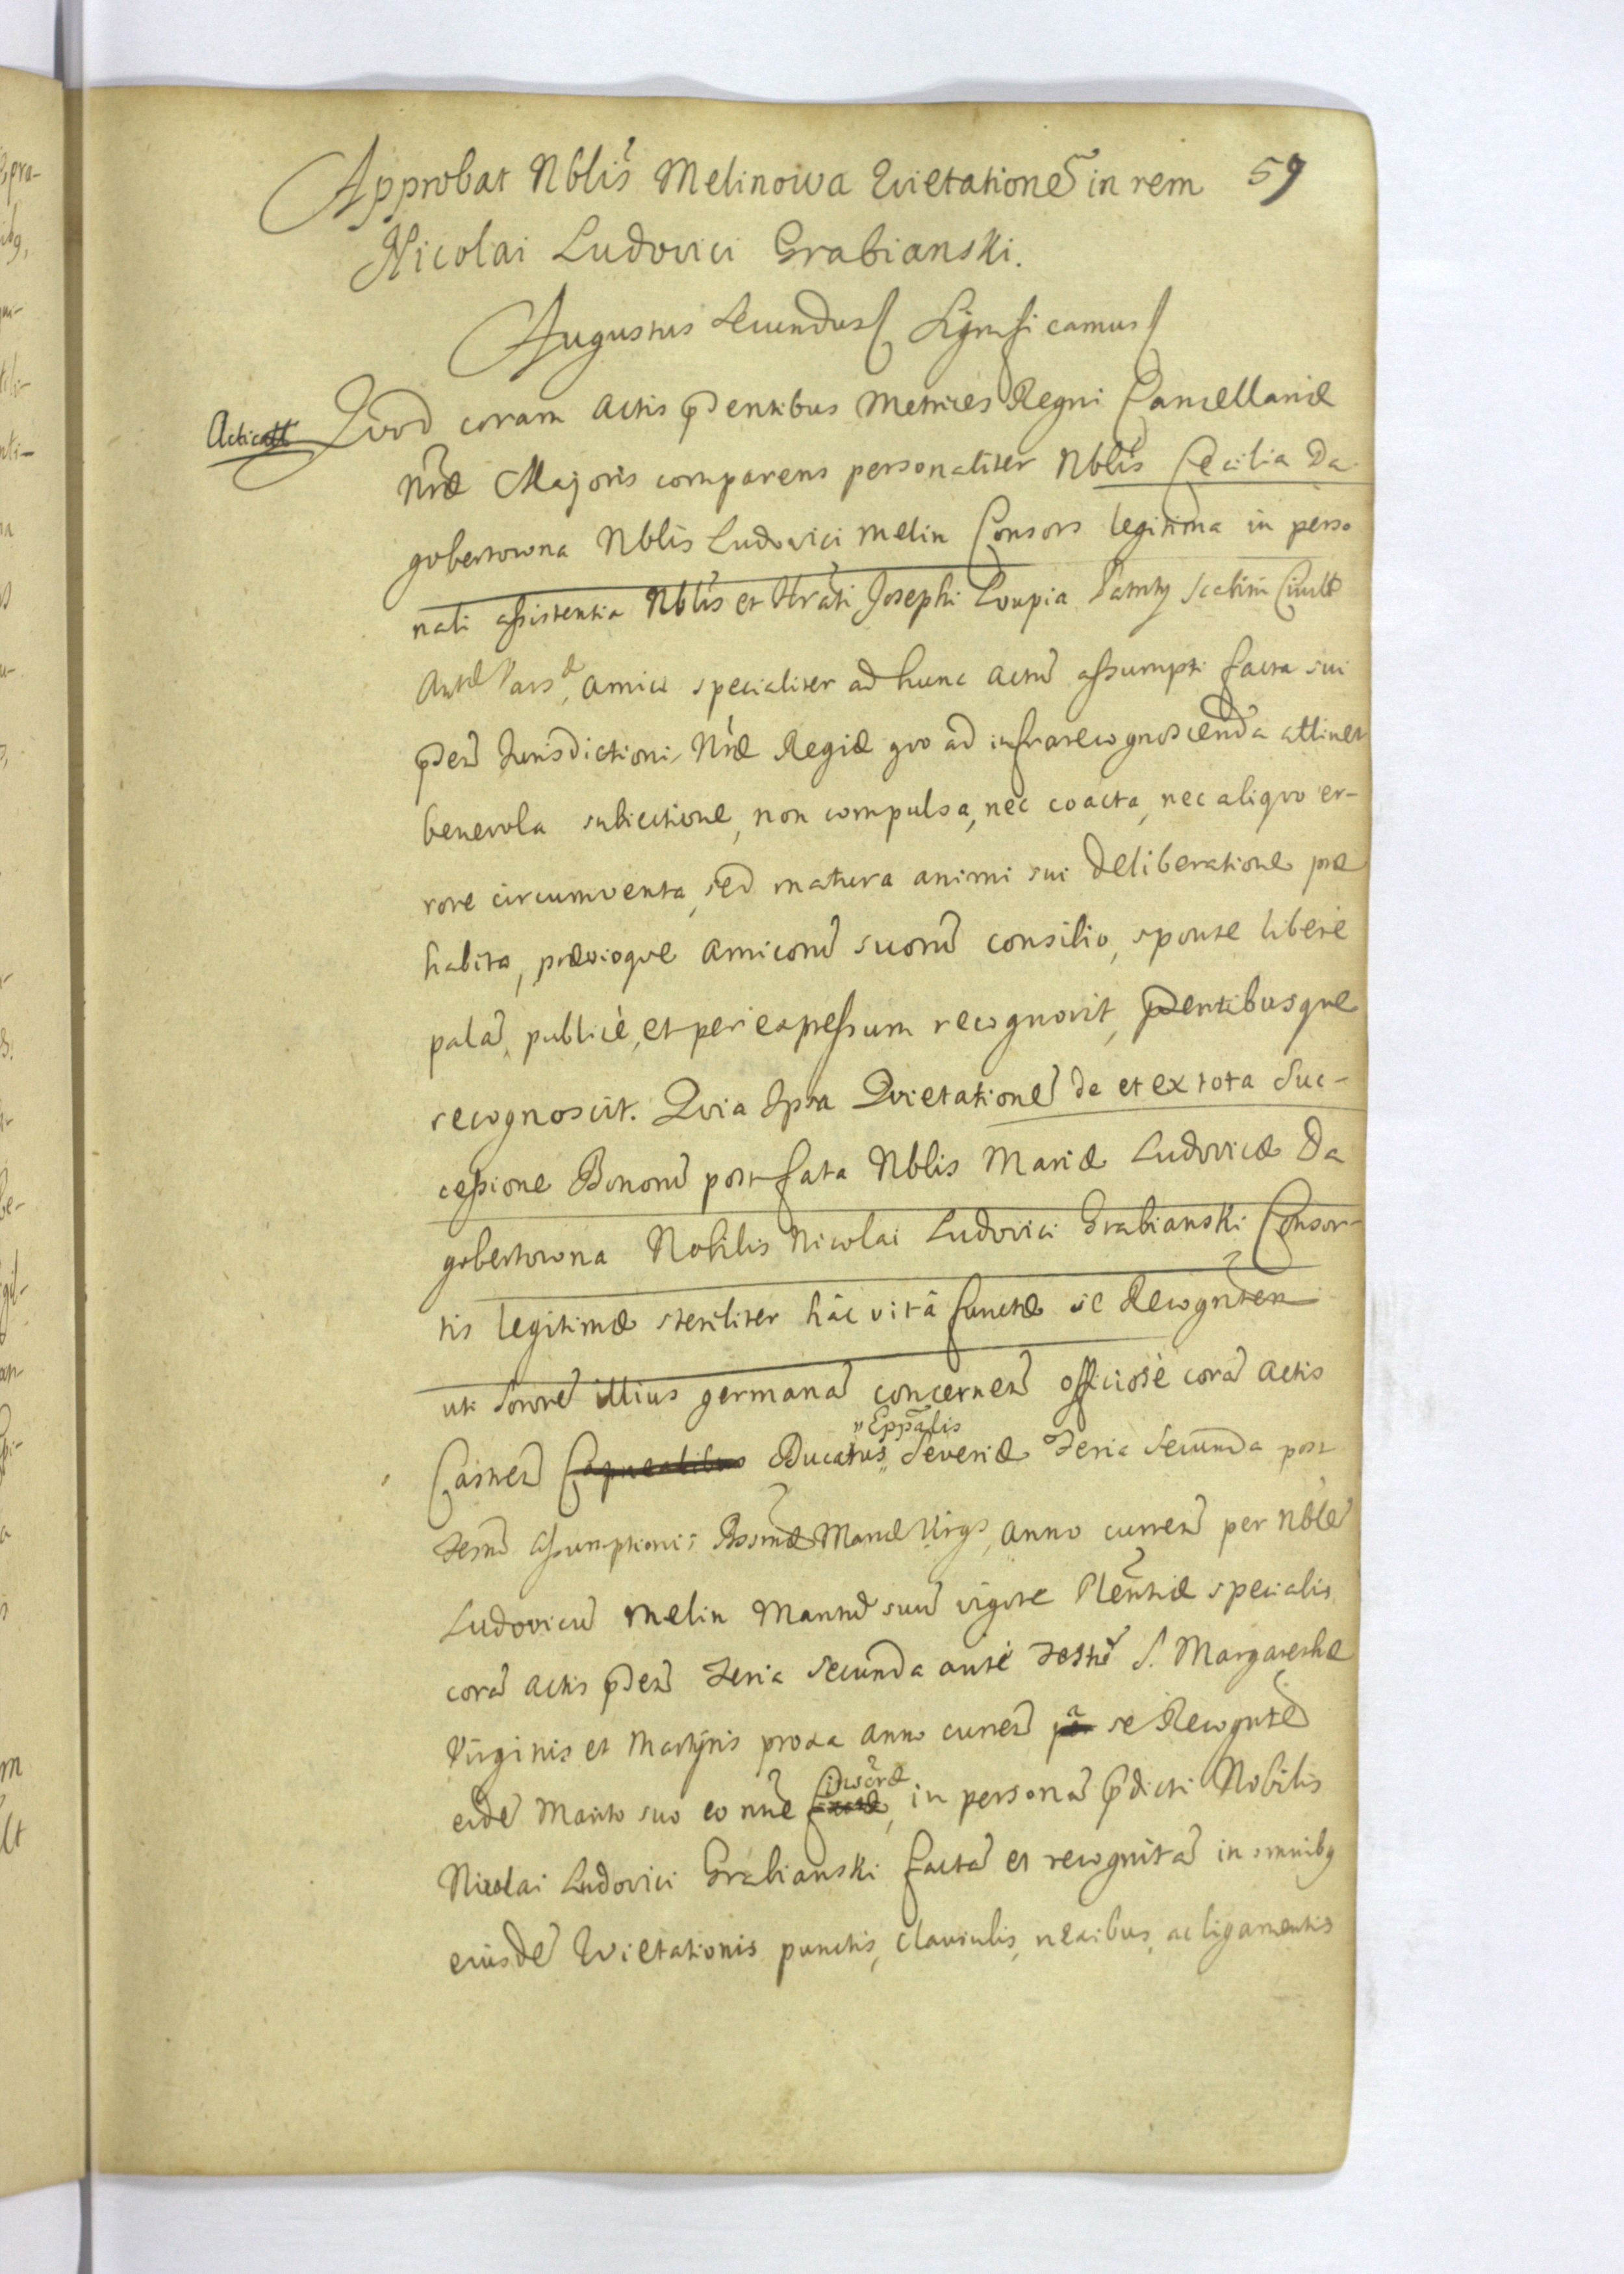 59
Approbat Nblis Melinowa Qvietationē in rem
Nicolai Ludovici Grabianski.
Augustus Secundus Significamus
Acticatt
Qvod coram Actis pñtibus Metrices Regni Cancellariæ
Nræ Majoris comparens personaliter Nblis Cecilia Da
gobertowna Nblis Ludovici Melin Consors legitima in perso
nali assistentia Nblis et Hrati Josephi Loupia Scabini Civilis
Antæ Vars, amici specialiter ad hunc actū assumpti facta sui
pñti Jurisdictioni Nræ Regiæ qvo ad infrarecognoscenda attinet
benevola subiectione, non compulsa, nec coacta, nec aliqvo er-
rore circumventa, sed matura animi sui deliberatione præ
habita, prævioqve amicorū suorū consilio, sponte libere
palā, publicè, et per expressum recognovit, pñtibusqve
recognoscit. Qvia Ipsa Qvietationē de et ex tota Suc-
cessione Bonorū post fata Nblis Mariæ Ludovicæ Da
gobertowna Nobilis Nicolai Ludovici Grabianski Consor-
tis legitimæ steriliter hâc vitâ functæ se Recognteñ
uti Sororē illius germanā concerneñ officiosè corā Actis
Castreñ Ducatus "Eppalis" Severiæ Feria Secunda post
Festū Assumptionis Bssmæ Mariæ Virgs, anno curreñ per Nblē
Ludovicū Melin Maritū suū vigore Plentiæ specialis
corā Actis pñti Feria Secunda ante Festū S. Margarethæ
Virginis et Martyris proxa anno curreñ a se Recognteñ
eidē Marito suo eo nne inscræ, in personā pdicti Nobilis
Nicolai Ludovici Grabianski factā et recognitā in omnibq
eiusdē Qvietationis punctis, claviulis, nexibus, ac ligamentis